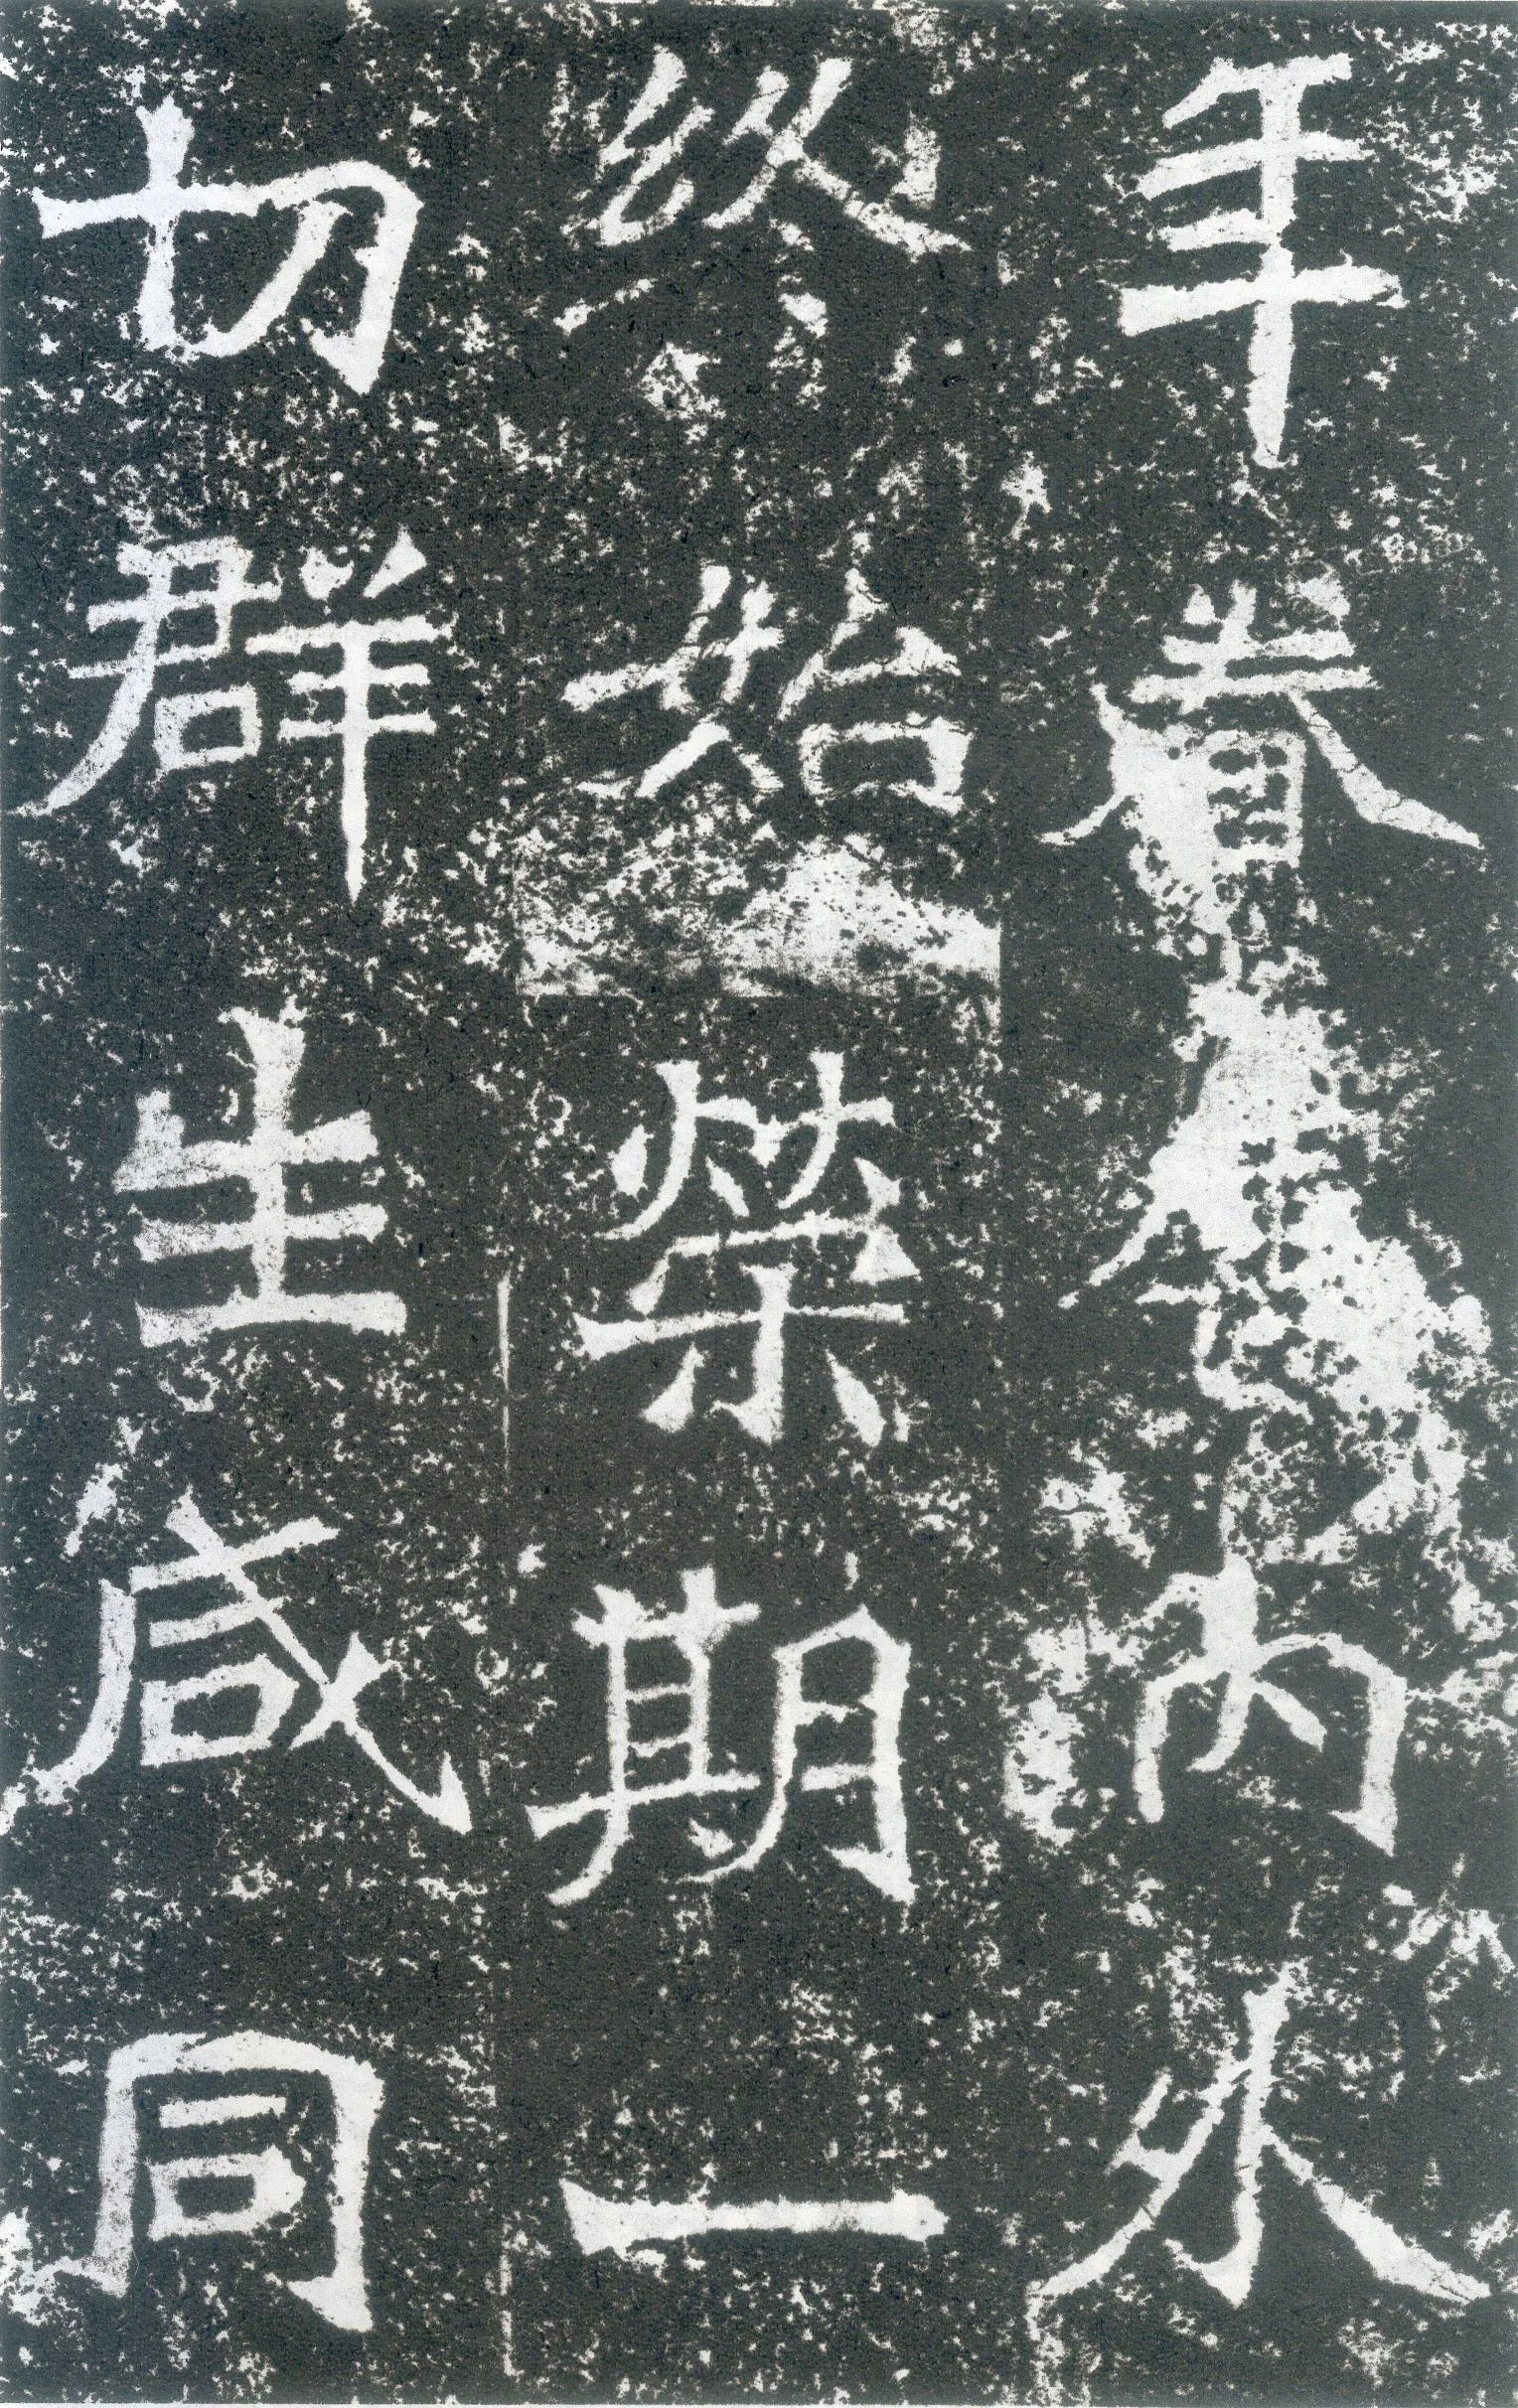 年眷內外
終始榮期一
切群生咸同